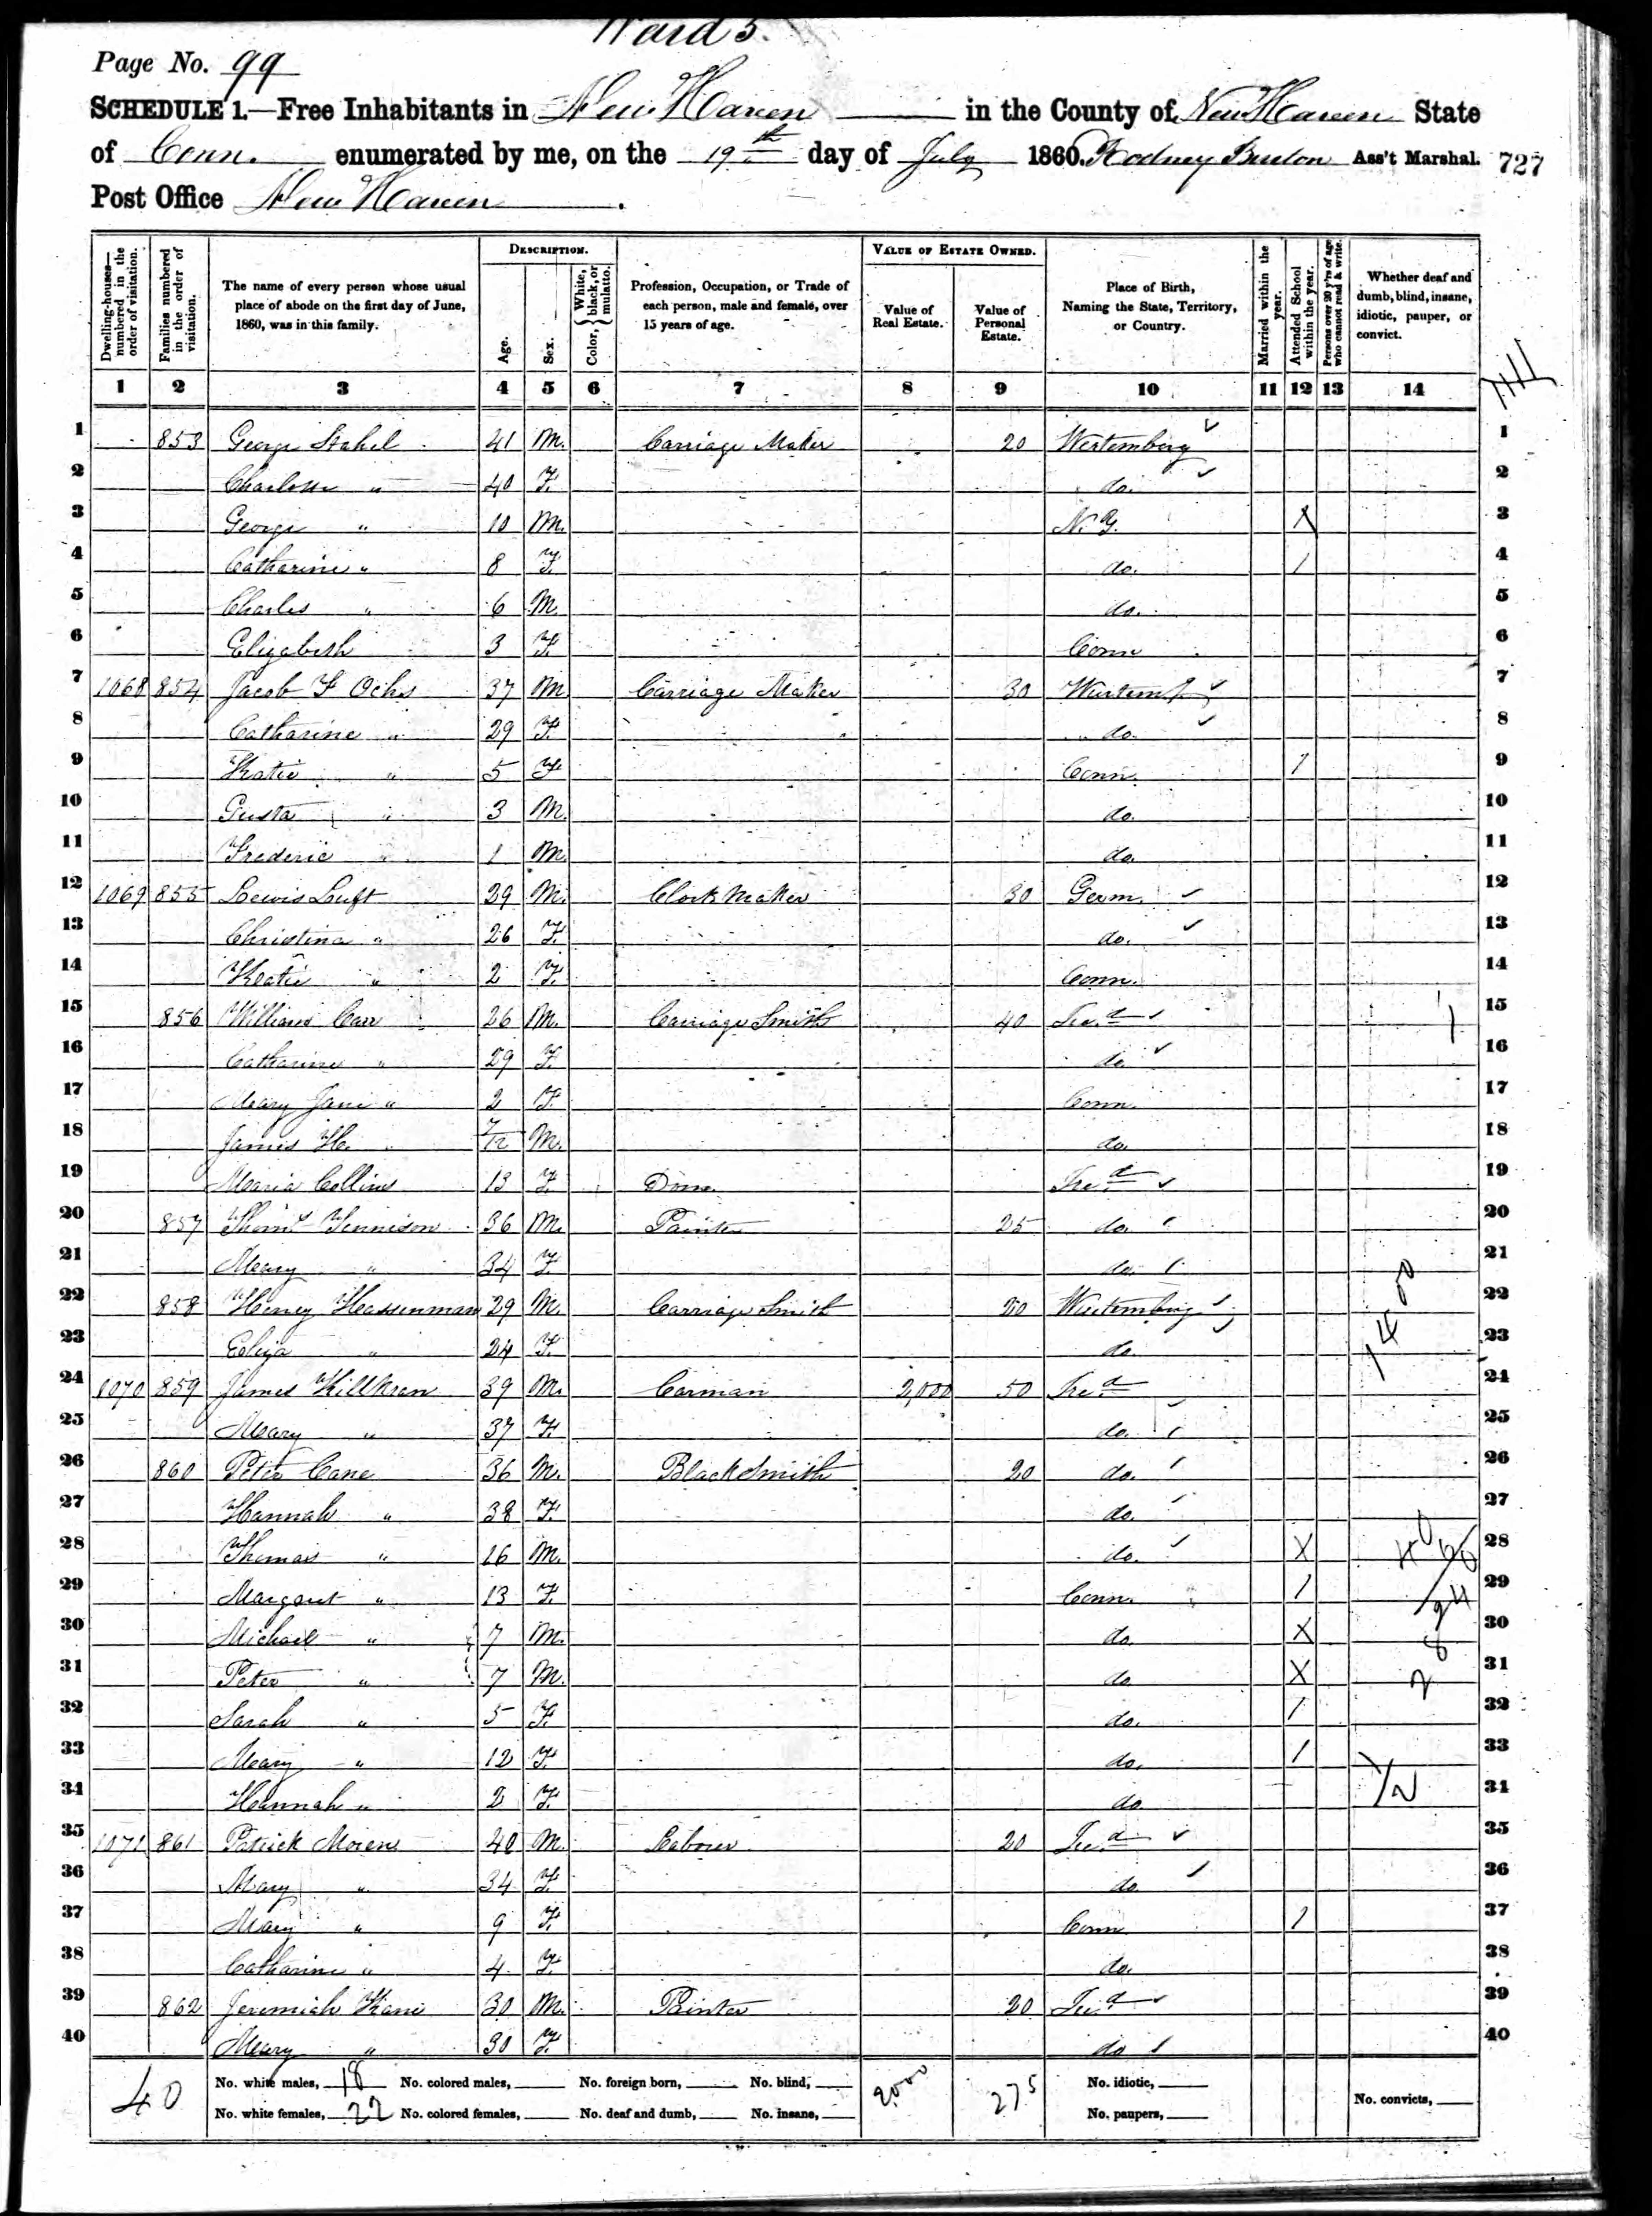 Ward 5.
Page No. 99
SCHEDULE 1.—Free Inhabitants in New Haven in the County of New Haven State
of Conn. enumerated by me, on the 19th day of July 1860. Rodney Burton Ass't Marshal. 727
Post Office New Haven.
Dwelling-houses—numbered in the order of visitation. Families numbered in the order of visitation. The name of every person whose usual place of abode on the first day of June, 1860, was in this family. DESCRIPTION. Age. Sex. Color, { White, black, or mulatto. Profession, Occupation, or Trade of each person, male and female, over 15 years of age. VALUE OF ESTATE OWNED. Value of Real Estate. Value of Personal Estate. Place of Birth, Naming the State, Territory, or Country. Married within the year. Attended School within the year. Persons over 20 y'rs of age who cannot read & write. Whether deaf and dumb, blind, insane, idiotic, pauper, or convict.
1 2 3 4 5 6 7 8 9 10 11 12 13 14
1 853 George Stahel 41 M. Carriage Maker 20 Wertemberg ✓ 1
2 Charlotte " 40 F. do. ✓ 2
3 George " 10 M. N.Y. X 3
4 Catharine " 8 F. do. / 4
5 Charles " 6 M. do. 5
6 Elizabeth 3 F. Conn 6
7 1068 854 Jacob F Ochs 37 M Carriage Maker 30 Wurtemb ✓ 7
8 Catharine " 29 F. do. ✓ 8
9 Katie " 5 F Conn. / 9
10 Gusta " 3 M. do. 10
11 Frederic " 1 M. do. 11
12 1069 855 Lewis Luft 29 M. Clock Maker 30 Germ. ✓ 12
13 Christina " 26 F. do. ✓ 13
14 Katie " 2 F. Conn. 14
15 856 William Carr 26 M. Carriage Smith 40 Ired ✓ 15
16 Catharine " 29 F. do. ✓ 16
17 Mary Jane " 2 F. Conn. 17
18 James H. " 7/12 M. do. 18
19 Maria Collins 13 F. Dom. Ired ✓ 19
20 857 Thoms Tennison 36 M. Painter 25 do. ✓ 20
21 Mary " 34 F. do. ✓ 21
22 858 Henry Hassenman 29 M. Carriage Smith 20 Wurtemberg ✓ 22
23 Eliza " 24 F. do. ✓ 23
24 1070 859 James Killkran 39 M. Carman 2,000 50 Ired 24
25 Mary " 37 F. do. ✓ 25
26 860 Peter Cane 36 M. Blacksmith 20 do. ✓ 26
27 Hannah " 38 F. do. ✓ 27
28 Thomas " 16 M. do. ✓ X 28
29 Margaret " 13 F. Conn. / 29
30 Michael " 7 M. do. X 30
31 Peter " 7 M. do X 31
32 Sarah " 5 F. do. / 32
33 Mary " 12 F. do. / 33
34 Hannah " 2 F. do 34
35 1071 861 Patrick Moren 40 M. Laborer 20 Ired ✓ 35
36 Mary " 34 F. do ✓ 36
37 Mary " 9 F. Conn / 37
38 Catharine " 4 F. do. 38
39 862 Jeremiah Kane 30 M. Painter 20 Ired ✓ 39
40 Mary " 30 F. do ✓ 40
40 No. white males, 18 No. colored males, No. foreign born, No. blind, 2000 275 No. idiotic,
No. white females, 22 No. colored females, No. deaf and dumb, No. insane, No. paupers, No. convicts,